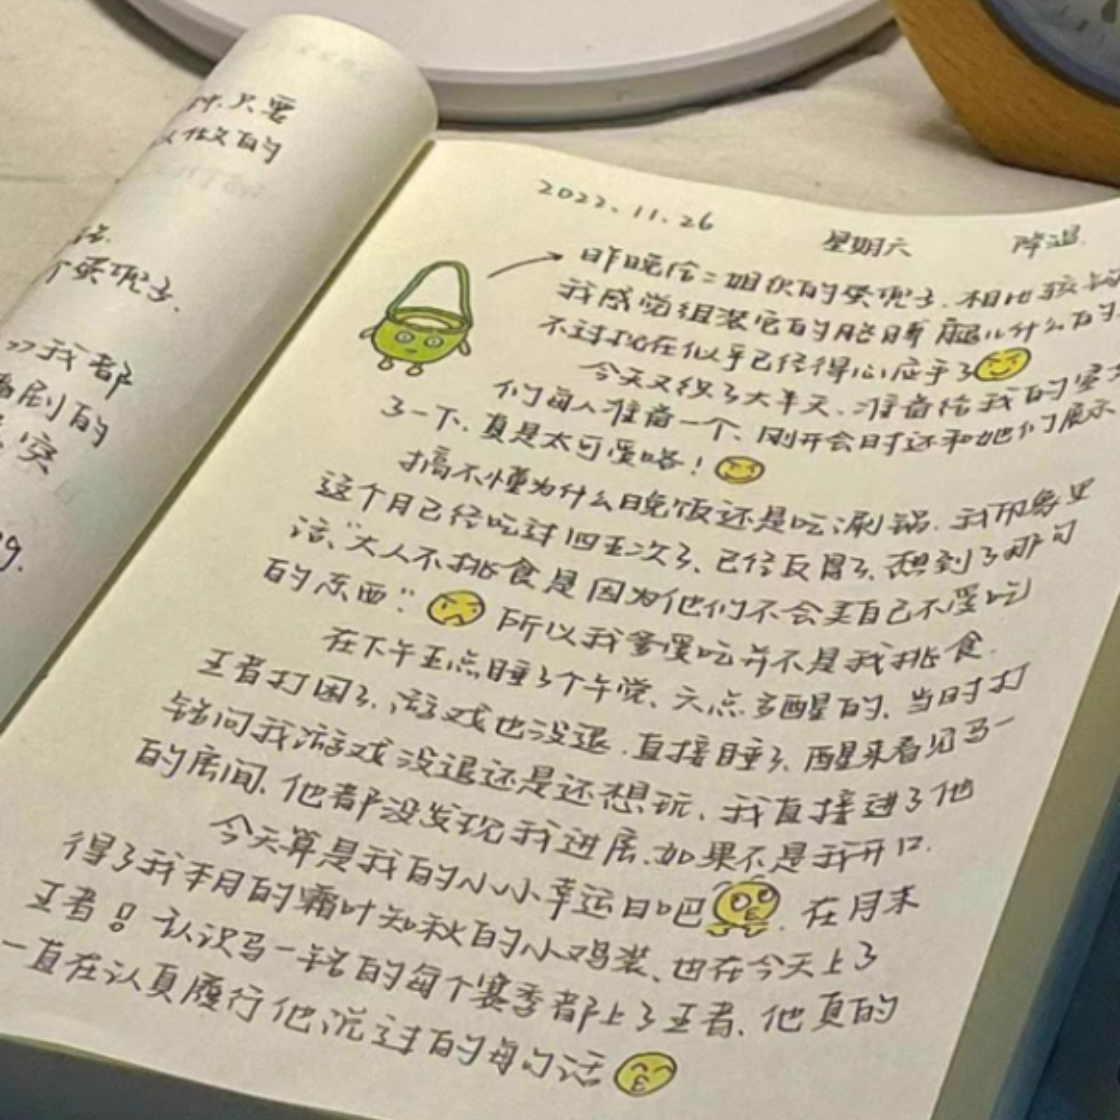 只要
做的
个柴呢子.
"我都
剧的
突
2022.11.26 星期六 降温.
昨晚给二姐织的柴呢子.相比较
我感觉组装它的胳膊腿儿什么的
不过现在似乎已经得心应手了
今天又织了大半天.准备给我的室
们每人准备一个、刚开会时还和她们展示
了一下.真是太可爱咯!
搞不懂为什么晚饭还是吃涮锅.我印象里
这个月已经吃过四五次了、已经反胃了.想到了那句
话、"大人不挑食是因为他们不会买自己不爱吃
的东西." 所以我爹爱吃并不是我挑食.
在下午五点睡了个午觉、六点多醒的、当时打
王者打困了、游戏也没退.直接睡了、醒来看见马一
铭问我游戏没退还是还想玩、我直接进了他
的房间.他都没发现我进房.如果不是我开口.
今天算是我的小小幸运日吧 .在月末
得了我本月的霜叶知秋的小鸡装、也在今天上了
王者!认识马一铭的每个赛季都上了王者、他真的
一直在认真履行他说过的每句话